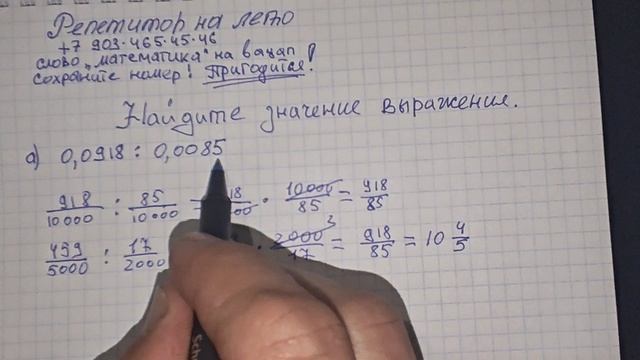 Репетитор на лето
+7 903·465·45·46
слово „математика" на вацап
сохраните номер! Пригодится!
Найдите значение выражение.
а) 0,0918 : 0,0085
918/10000 : 85/10000 = 18/00 · 10000/85 = 918/85
459/5000 : 17/2000 · 2000/17 = 918/85 = 10 4/5